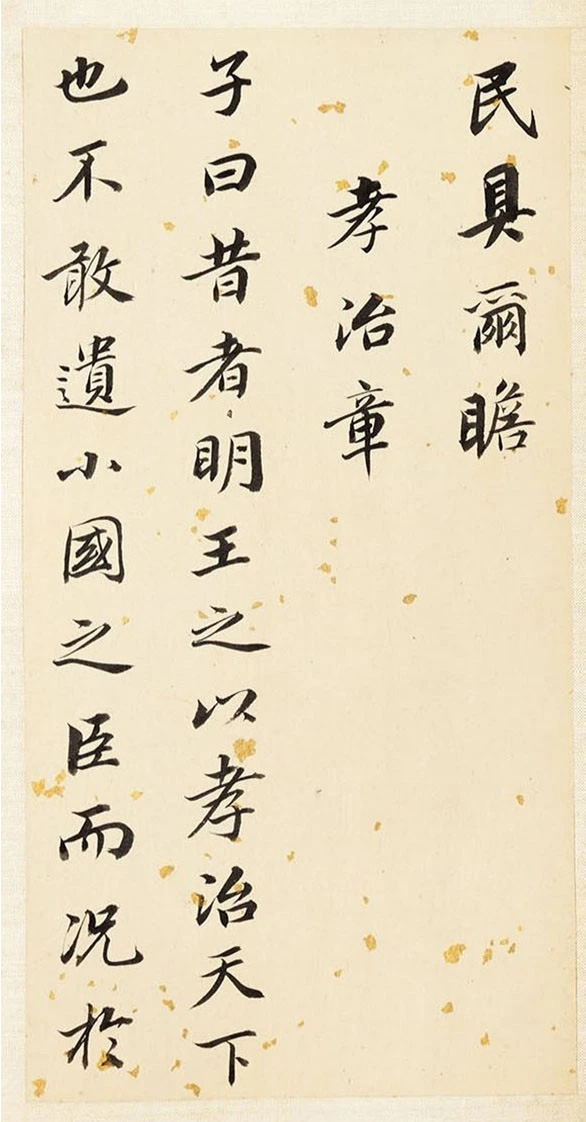 民具爾瞻
孝治章
子曰昔者明王之以孝治天下
也不敢遺小國之臣而况於